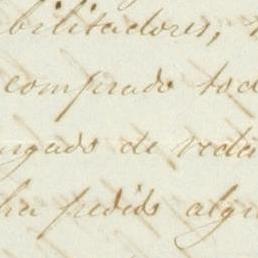 bilitadores,
comprado tod
rgado de redac
ha pedido algu